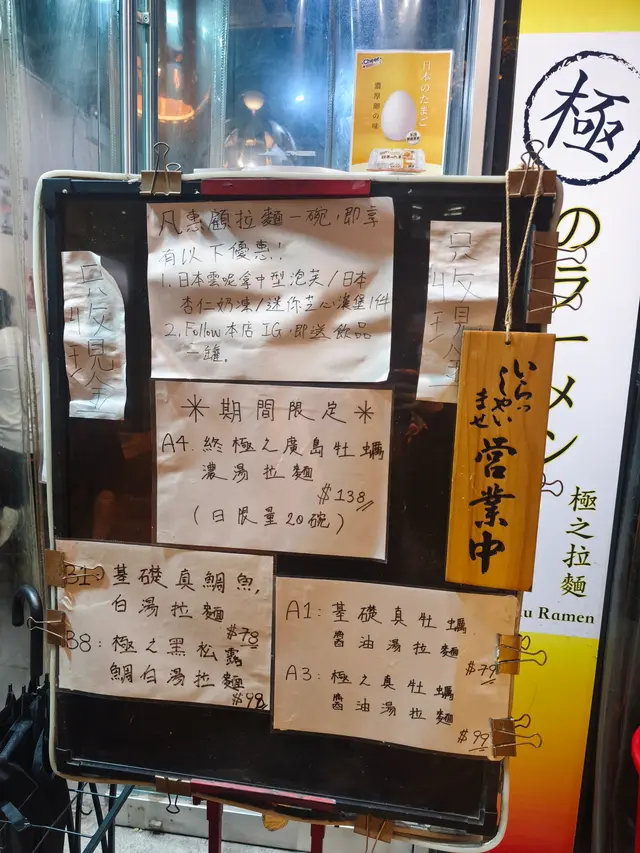 日本のたまご
濃厚卵の味
極
のラーメン
極之拉麵
u Ramen
凡惠顧拉麵一碗,即享
有以下優惠!
1. 日本雲呢拿中型泡芙/日本
杏仁奶凍/迷你芝心漢堡1件
2. Follow本店IG,即送飲品
一罐。
只收現金
只收現金
いらっ
しゃい
ませ
営業中
*期間限定*
A4. 終極之廣島牡蠣
濃湯拉麵
$138
(日限量20碗)
B1: 基礎真鯛魚,
白湯拉麵
$78
B8: 極之黑松露
鯛白湯拉麵
$98
A1: 基礎真牡蠣
醬油湯拉麵
$79
A3: 極之真牡蠣
醬油湯拉麵
$99